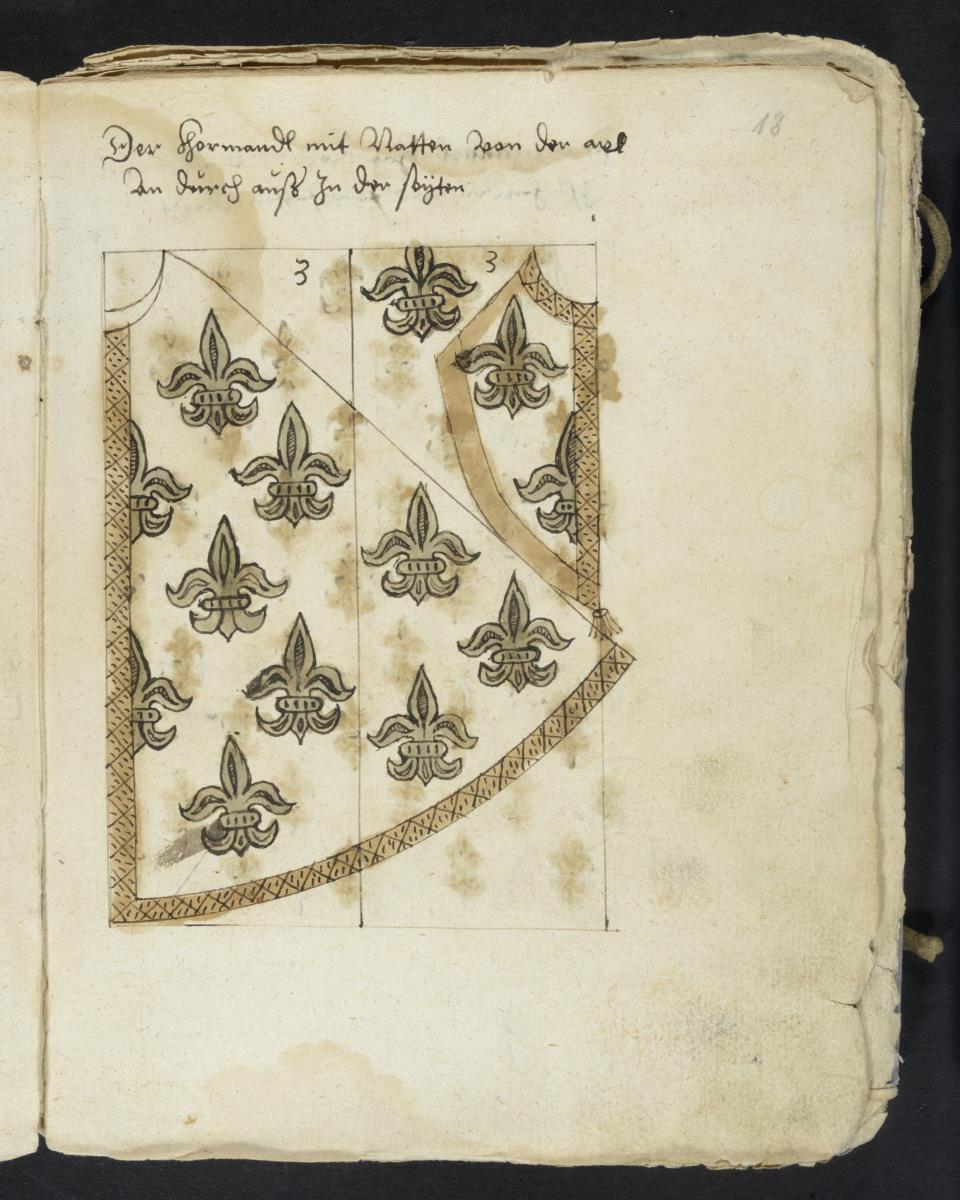 18
Der Chormandl mit Natten von der axl
An durch auß In der seÿten
3 3